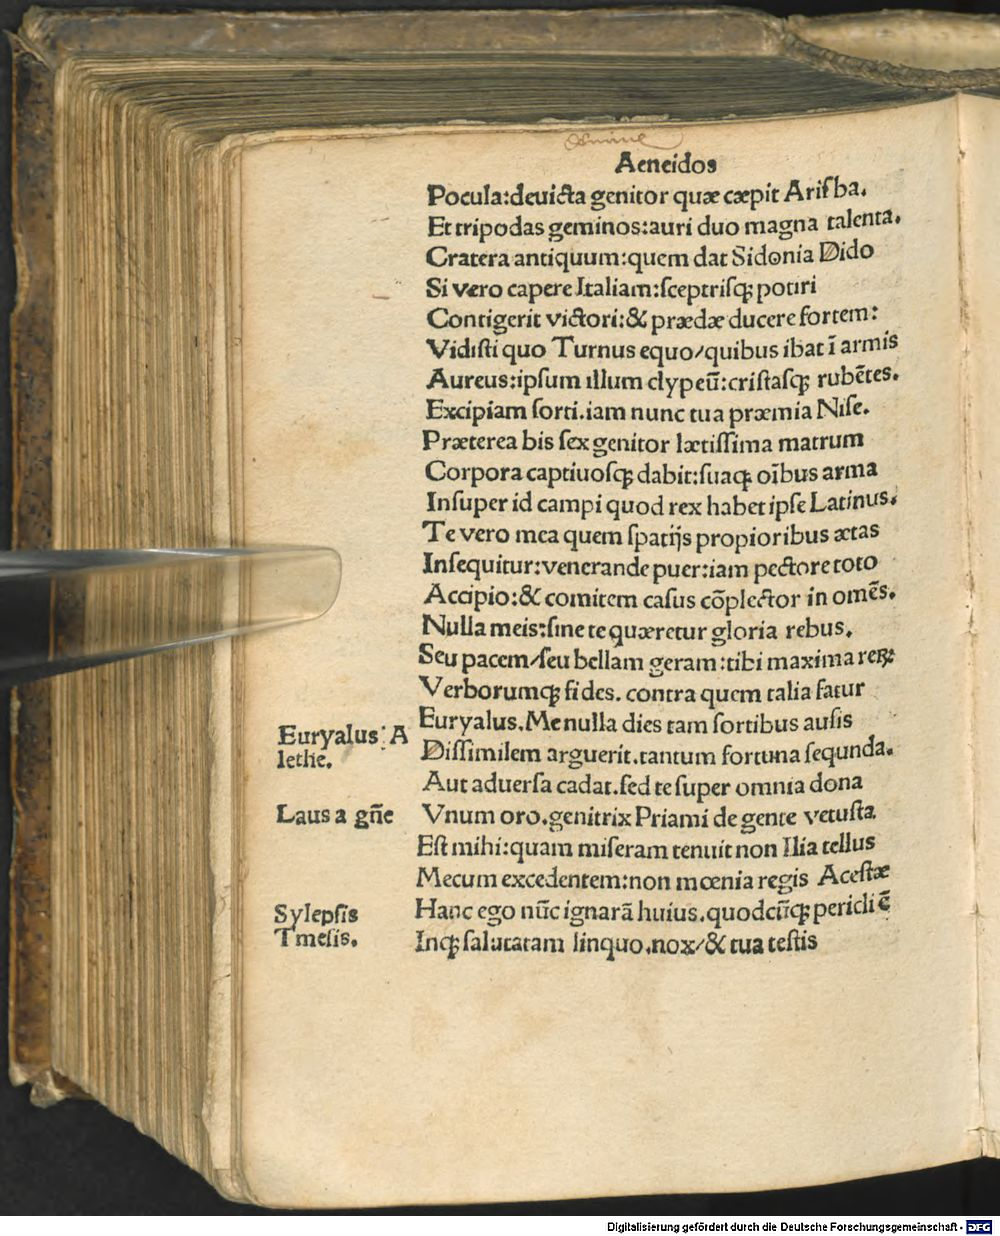 Aeneidos
Pocula:deuicta genitor quæ cæpit Arisba.
Et tripodas geminos:auri duo magna talenta.
Cratera antiquum:quem dat Sidonia Dido
Si vero capere Italiam:sceptrisq; potiri
Contigerit victori:& prædæ ducere sortem:
Vidisti quo Turnus equo/quibus ibat ī armis
Aureus:ipsum illum clypeū:cristasq; rubētes.
Excipiam sorti.iam nunc tua præmia Nise.
Præterea bis sex genitor lætissima matrum
Corpora captiuosq; dabit:suaq; oībus arma
Insuper id campi quod rex habet ipse Latinus.
Te vero mea quem spatijs propioribus ætas
Insequitur:venerande puer:iam pectore toto
Accipio:& comitem casus cōplector in omēs.
Nulla meis:sine te quæretur gloria rebus.
Seu pacem/seu bellam geram:tibi maxima reꝝ:
Verborumq; fides. contra quem talia fatur
Euryalus.Me nulla dies tam fortibus ausis
Dissimilem arguerit.tantum fortuna sequnda.
Aut aduersa cadat.sed te super omnia dona
Vnum oro.genitrix Priami de gente vetusta
Est mihi:quam miseram tenuit non Ilia tellus
Mecum excedentem:non mœnia regis Acestæ
Hanc ego nūc ignarā huius.quodcūq; pericli ē
Inq; salutatam linquo.nox/& tua testis
Euryalus: A
lethe.
Laus a gñe
Sylepsis
Tmesis.
Digitalisierung gefördert durch die Deutsche Forschungsgemeinschaft - DFG